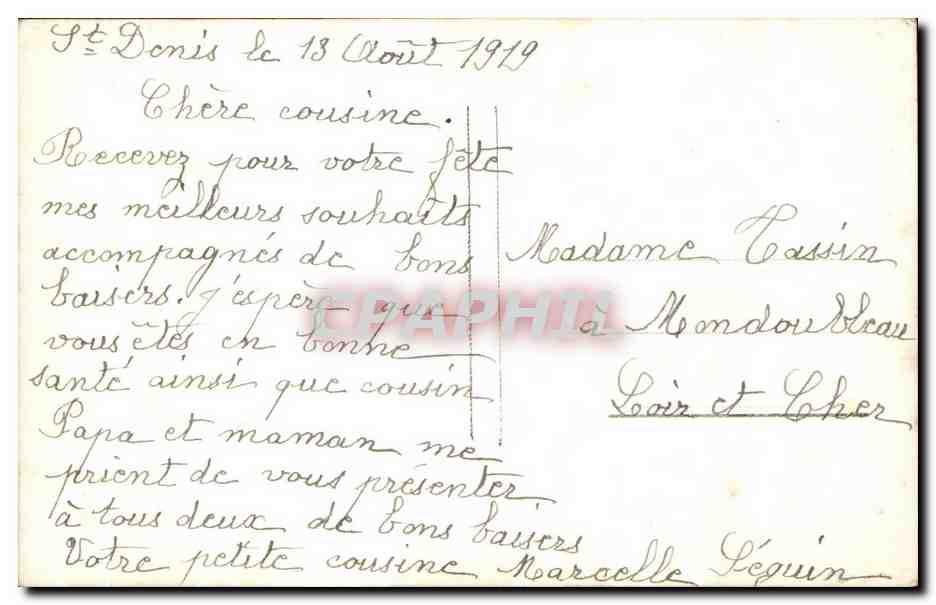 St Denis le 13 Août 1919
Chère cousine.
Recevez pour votre fête
mes meilleurs souhaits
accompagnés de bons
baisers. j'espère que
vous êtes en bonne
santé ainsi que cousin
Papa et maman me
prient de vous présenter
à tous deux de bons baisers
Votre petite cousine Marcelle Séguin
Madame Tassin
à Mondoubleau
Loir et Cher
CPAPHIL